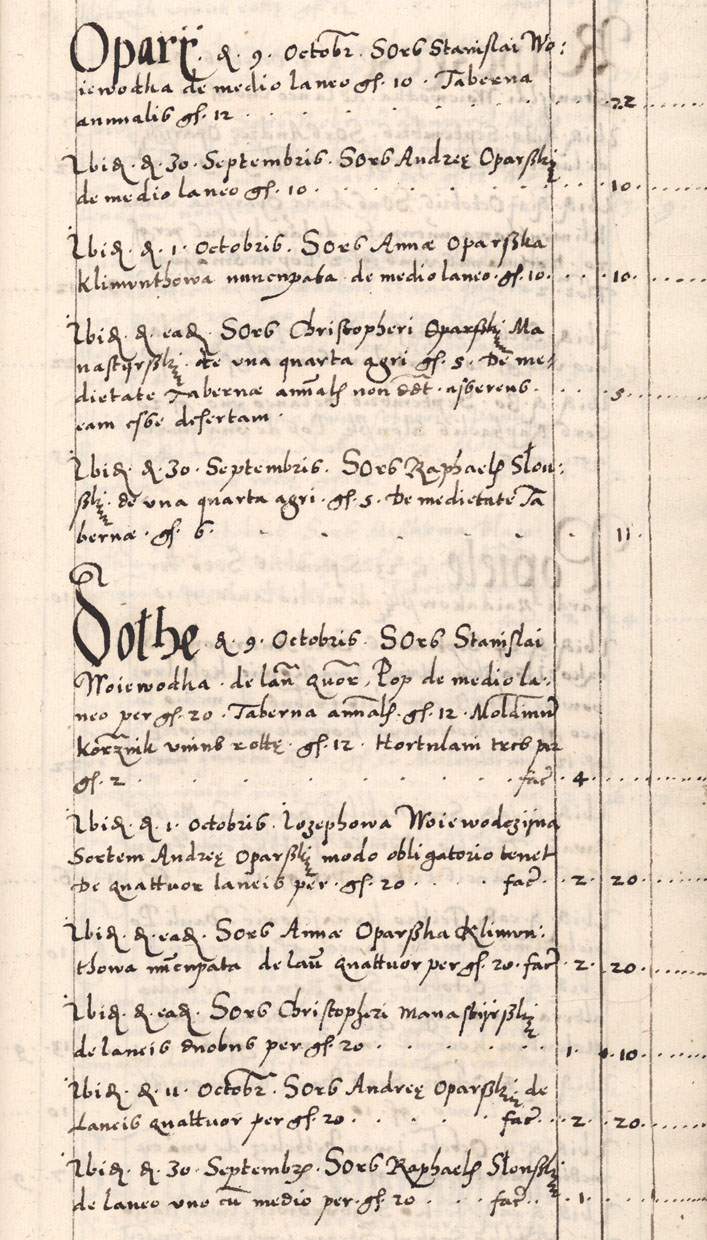 Opary. d. 9. Octobr. Sors Stanislai Wo:
iewodha de medio laneo gs. 10. Taberna
annualis gs. 12 22
Ibid. d. 30. Septembris. Sors Andreę Oparsski
de medio laneo gs. 10. 10.
Ibid. d. 1. Octobris. Sors Annæ Oparsska
Klimunthowa nuncupata de medio laneo. gs. 10. 10.
Ibid. d. ead. Sors Christopheri Oparsski Ma
nastyrsski de una quarta agri gs. 5. De me=
dietate Tabernæ annals non dedit. asserens 5.
eam esse desertam.
Ibid. d. 30. Septembris. Sors Raphaels Slon:
sski de una quarta agri. gs. 5. De medietate Ta
bernæ. gs. 6. 11.
Dolhe d. 9. Octobris. Sors Stanislai
Woiewodha. de lan quor. Pop de medio la:
neo per gs. 20. Taberna annals. gs. 12. Moldinum
Korznik unius rottę. gs. 12. Hortulani tres per
gs. 2 fac 4.
Ibid. d. 1. Octobris. Iozephowa Woiewodczijna
Sortem Andreę Oparsski modo obligatorio tenet
De quattuor laneis per. gs. 20. fac. 2. 20.
Ibid. d. ead. Sors Annæ Oparsska Klimun:
thowa nuncupata de lan quattuor per gs. 20. fac 2. 20.
Ibid. d. ead. Sors Christopheri Manastijrsski
de laneis duobus per gs. 20 1. 10.
Ibid. d. 11. Octobr. Sors Andreę Oparsski de
Laneis quattuor per gs. 20. fac. 2. 20.
Ibid. d. 30. Septembr. Sors Raphaels Slonsski
de laneo uno cu medio per. gs. 20 fac. 1.